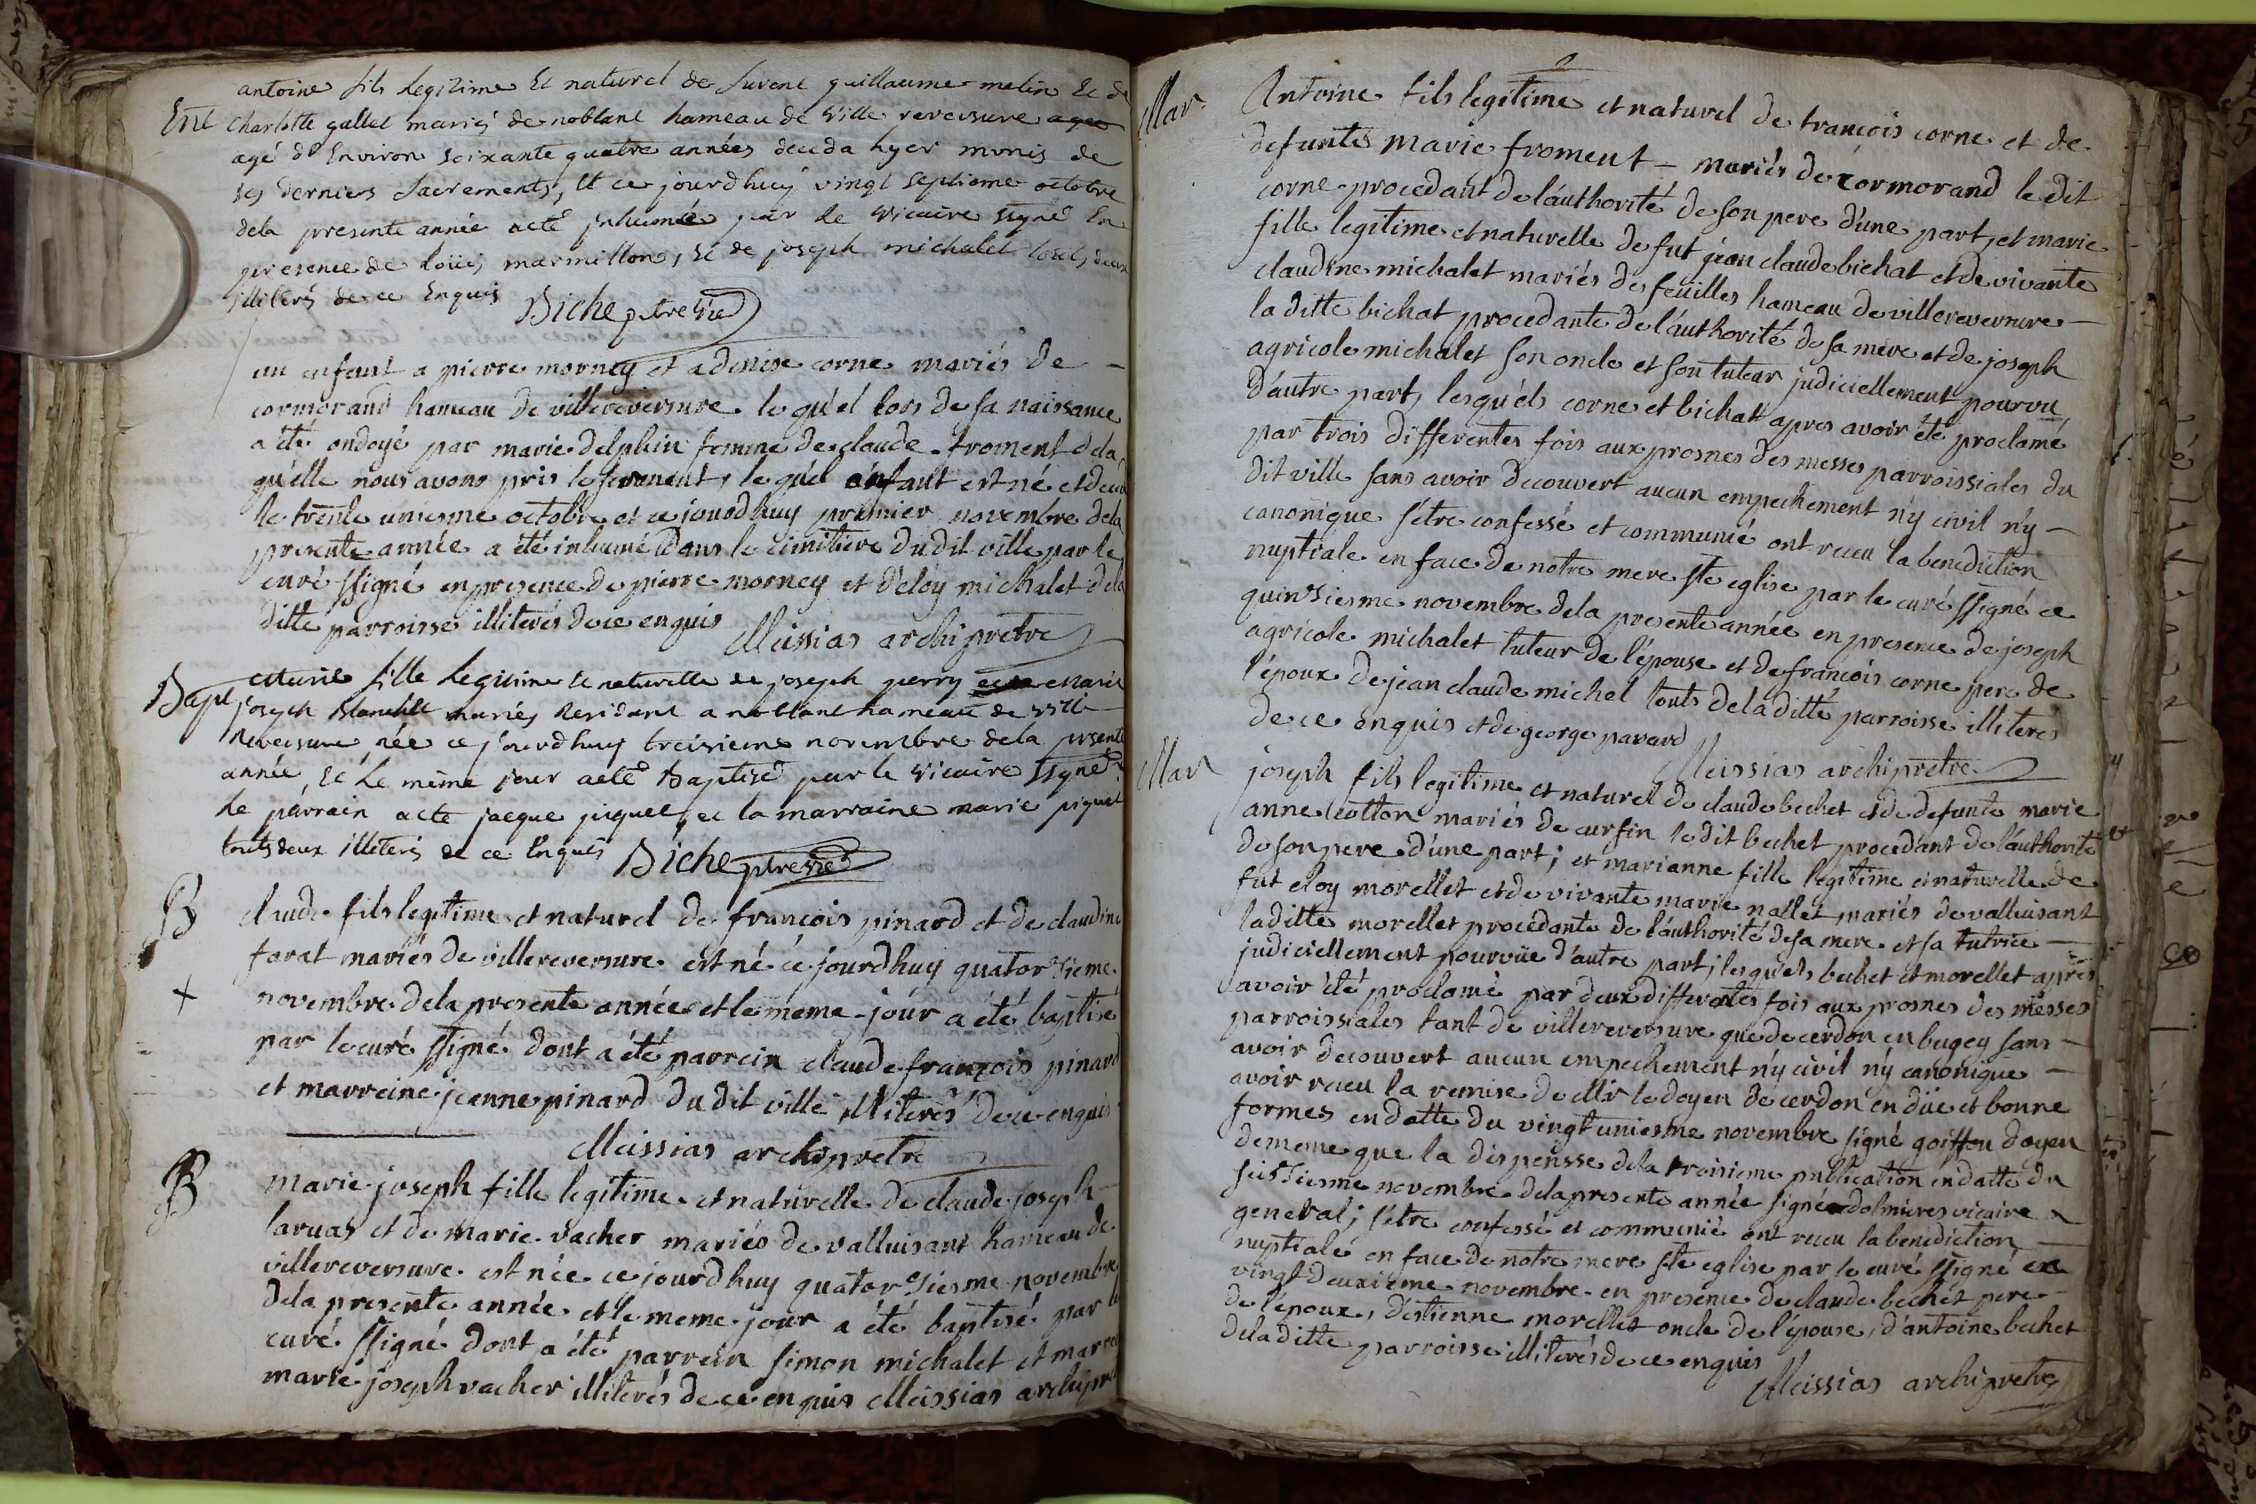 antoine fils Legitime Et naturel de guillaume melin Et de
Ent Charlotte gallet mariés de noblant hameau de Ville reversure agee
agé d'Environ Soixante quatre années deceda hyer munis de
ses derniers Sacrements, Et ce jourdhuy vingt septieme octobre
dela presente année aeté jnhumée par le Vicaire ssigné En
presence de Loüis marmillon, Et de joseph michalet tous deux
jlliterés de ce Enquis Biche ptre vie
un enfant a pierre morney et a denise corne mariés de -
cormorand hameau de villereversure lequ'el lors de sa naissance
a été ondoyé par marie delphin femme de claude froment dela
qu'elle nous avons pris le serment, lequ'el enfant est né et decedé
le trente uniesme octobre et ce jourdhuy premier novembre dela
presente année a été inhumé dans le cimitiere du dit ville par le
curé ssigné en presence de pierre morney et d'eloy michalet dela
ditte parroisse illiterés de ce enquis
Meissias archiprêtre
Bapt Marie fille Legitime Et naturelle de joseph perry et de Marie
joseph Blanchet mariés Residant a noblant hameau de Ville
Reversure née ce jourdhuy treisieme novembre dela presente
année, Et Le même jour aeté Baptisé par le Vicaire ssigné
Le parrain aeté jacque piquet, et la marraine marie piquet
touts deux illiterés de ce Enquis Biche ptre vie
B claude fils legitime et naturel de françois pinard et de claudine
farat mariés de villereversure est né ce jourdhuy quatorsieme
+ novembre dela presente année et le même jour a été baptisé
par le curé ssigné dont a été parrein claude françois pinard
et marreine jeanne pinard du dit ville illiterés de ce enquis
Meissias archiprêtre
B marie joseph fille legitime et naturelle de claude joseph
laruas et de marie vacher mariés de valluisant hameau de
villereversure est née ce jourdhuy quatorsiesme novembre
dela presente année et le meme jour a été baptisé par le
curé ssigné dont a été parrein simon michalet et marreine
marie joseph vacher illiterés de ce enquis Meissias archiprêtre
2
Mar. Antoine fils legitime et naturel de françois corne et de
defunte marie froment - mariés de cormorand le dit
corne procedant de l'authorité de son pere d'une part, et marie
fille legitime et naturelle de fut jean claude bichat et de vivante
claudine michalet mariés des feüilles hameau de villereversure -
la ditte bichat procedante de l'authorité de sa mere et de joseph
agricole michalet son oncle et son tuteur judiciellement pourvu
d'autre part, lesqu'els corne et bichat apres avoir été proclamé
par trois differentes fois aux prosnes des messes parroissiales du
dit ville sans avoir decouvert aucun empechement n'y civil n'y -
canonique s'etre confessé et communié ont receu la benediction
nuptiale en face de notre mere ste eglise par le curé ssigné ce
quinsiesme novembre dela presente année en presence de joseph
agricole michalet tuteur de l'épouse et de françois corne pere de
l'époux de jean claude michel touts dela ditte parroisse illiterés
de ce enquis et de george pavard
Meissias archiprêtre
Mar joseph fils legitime et naturel de claude bechet et de defunte marie
anne cotton mariés de curfin le dit bechet procedant de l'authorité
de son pere d'une part; et marianne fille legitime et naturelle de
fut eloy morellet et de vivante marie nallet mariés de valluisant
la ditte morellet procedante de l'authorité de sa mere et sa tutrice -
judiciellement pourvüe d'autre part; lesqu'els bechet et morellet apres
avoir été proclamé par deux differentes fois aux prosnes des messes
parroissiales tant de villereversure que de cerdon en bugey sans -
avoir decouvert aucun empechement n'y civil n'y canonique -
avoir receu la remise de Mr le doyen de cerdon en düe et bonne
formes en datte du vingt uniesme novembre signé goiffon doyen
de meme que la dispensse dela troisieme publication en datte du
seisiesme novembre dela presente année signé dolmieres vicaire
general; s'etre confessé et communié ont receu la benediction -
nuptiale en face de notre mere ste eglise par le curé ssigné ce
vingt deuxieme novembre en presence de claude bechet pere -
de l'époux, d'estienne morellet oncle de l'épouse, d'antoine bechet
dela ditte parroisse illiterés de ce enquis
Meissias archiprêtre